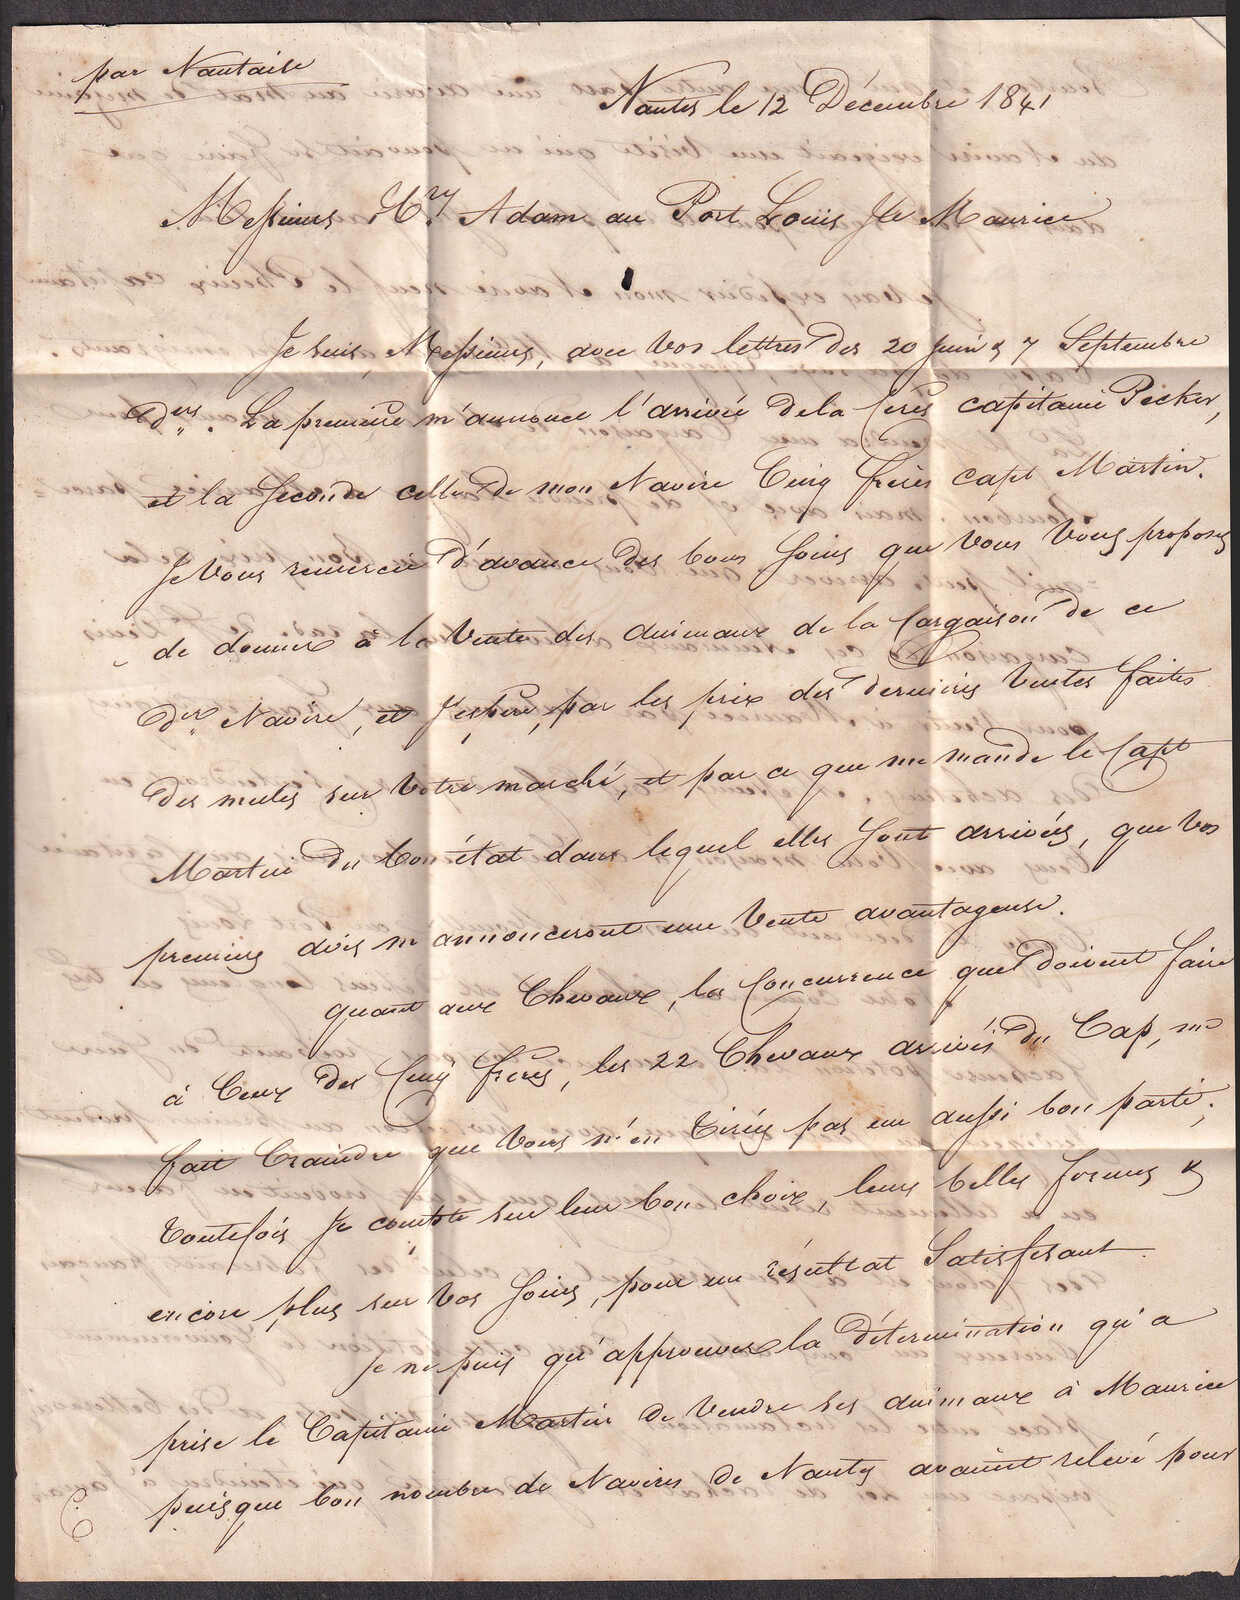 par Nantaise
Nantes le 12 Décembre 1841
Messieurs Hy. Adam au Port Louis Ile Maurice
Je suis, Messieurs, avec vos lettres des 20 Juin & 7 Septembre
ders. La première m'annonce l'arrivée de la Cerès capitaine Pecker,
et la seconde celle de mon Navire Cinq frères capt Martin.
Je vous remercie d'avance des bons soins que vous vous proposez
de donner à la vente des animaux de la Cargaison de ce
der Navire, et J'espère, par les prix des dernières ventes faites
des mules sur votre marché, et par ce que me mande le Capt
Martin du bon état dans lequel elles sont arrivées, que vos
premiers avis m'annonceront une vente avantageuse.
quant aux Chevaux, la Concurrence que doivent faire
à Ceux des Cinq frères, les 22 Chevaux arrivés du Cap, me
fait Craindre que vous n'en tiriez pas un aussi bon parti;
toutefois Je compte sur leur bon choix, leurs belles formes &
encore plus sur vos soins, pour un résultat Satisfesant.
Je ne puis qu'approuver la détermination qu'a
prise le Capitaine Martin de vendre ses animaux à Maurice
puisque bon nombre de Navires de Nantes avaient relevé pour